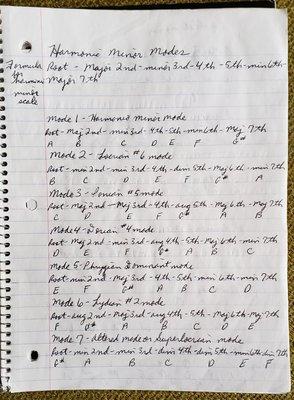 Harmonic Minor Modes
Formula for harmonic minor scale
Root - Major 2nd - minor 3rd - 4th - 5th - min 6th -
Major 7th
Mode 1 - Harmonic Minor mode
Root - Maj 2nd - min 3rd - 4th - 5th - min 6th - Maj 7th
A B C D E F G#
Mode 2 - Locrian #6 mode
Root - min 2nd - min 3rd - 4th - dim 5th - Maj 6th - min 7th
B C D E F G# A
Mode 3 - Ionian #5 mode
Root - Maj 2nd - Maj 3rd - 4th - aug 5th - Maj 6th - Maj 7th
C D E F G# A B
Mode 4 - Dorian #4 mode
Root - Maj 2nd - min 3rd - aug 4th - 5th - Maj 6th - min 7th
D E F G# A B C
Mode 5 - Phrygian Dominant mode
Root - min 2nd - Maj 3rd - 4th - 5th - min 6th - min 7th
E F G# A B C D
Mode 6 - Lydian #2 mode
Root - aug 2nd - Maj 3rd - aug 4th - 5th - Maj 6th - Maj 7th
F G# A B C D E
Mode 7 - Altered mode or Superlocrian mode
Root - min 2nd - min 3rd - dim 4th - dim 5th - min 6th - dim 7th
G# A B C D E F